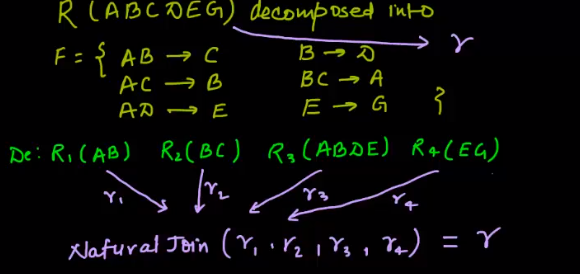 R (ABCDEG) decomposed into
r
F = { AB → C B → D
AC → B BC → A
AD → E E → G }
De: R1(AB) R2(BC) R3(ABDE) R4(EG)
r1 r2 r3 r4
Natural Join (r1, r2, r3, r4) = r